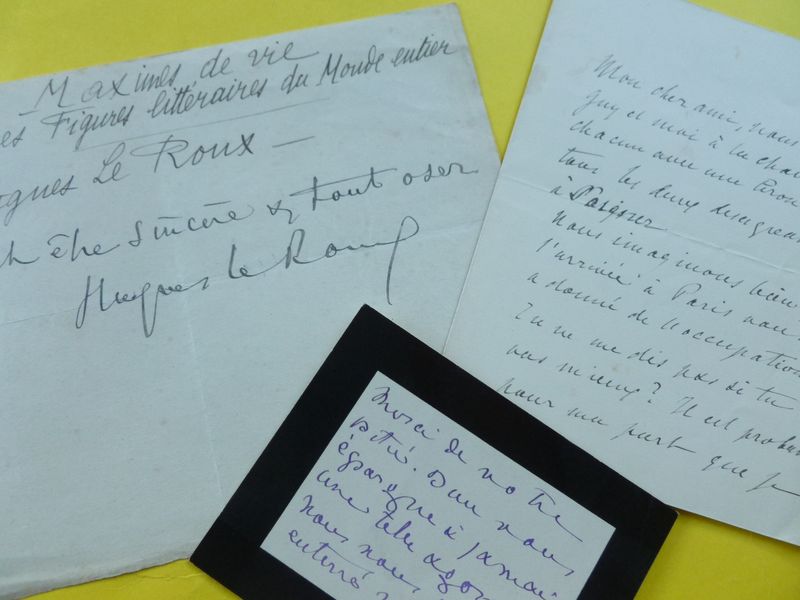 Maximes de vie
es Figures littéraires du Monde entier
ugues Le Roux —
être sincère & tout oser
Hugues Le Roux
Mon cher ami, nous
Guy et moi à la
chacun avec une
tous les deux
à soigner
Nous imaginons bien
l'arrivée à Paris
a donné de l'occupation
Tu ne me dis pas si tu
vas mieux? Il est
pour ma part que je
Merci de votre
pitié. Dieu vous
épargne à jamais
une telle
nous, nous,
enterré